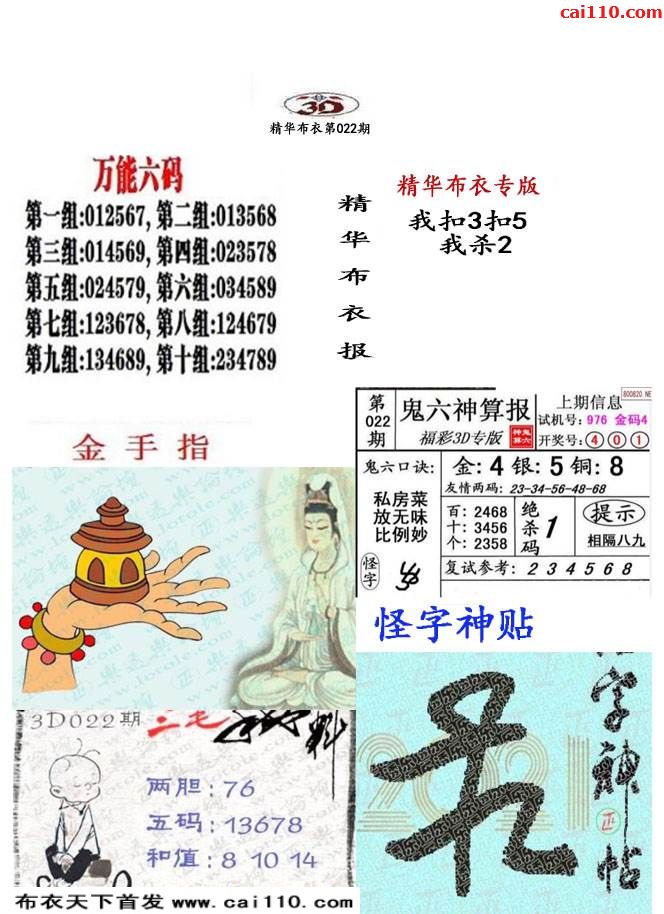 cai110.com
3D
精华布衣第022期
万能六码
第一组:012567, 第二组:013568
第三组:014569, 第四组:023578
第五组:024579, 第六组:034589
第七组:123678, 第八组:124679
第九组:134689, 第十组:234789
精华布衣报
精华布衣专版
我扣3扣5
我杀2
金手指
800820.NE
第022期
鬼六神算报
福彩3D专版
上期信息
试机号: 976 金码4
开奖号: 4 0 1
鬼六口诀:
私房菜
放无味
比例妙
金: 4 银: 5 铜: 8
友情两码: 23-34-56-48-68
百: 2468
十: 3456
个: 2358
绝杀码 1
提示
相隔八九
怪字
复试参考: 2 3 4 5 6 8
怪字神贴
字神帖
2021
3D022期
三毛
两胆: 76
五码: 13678
和值: 8 10 14
布衣天下首发 www.cai110.com